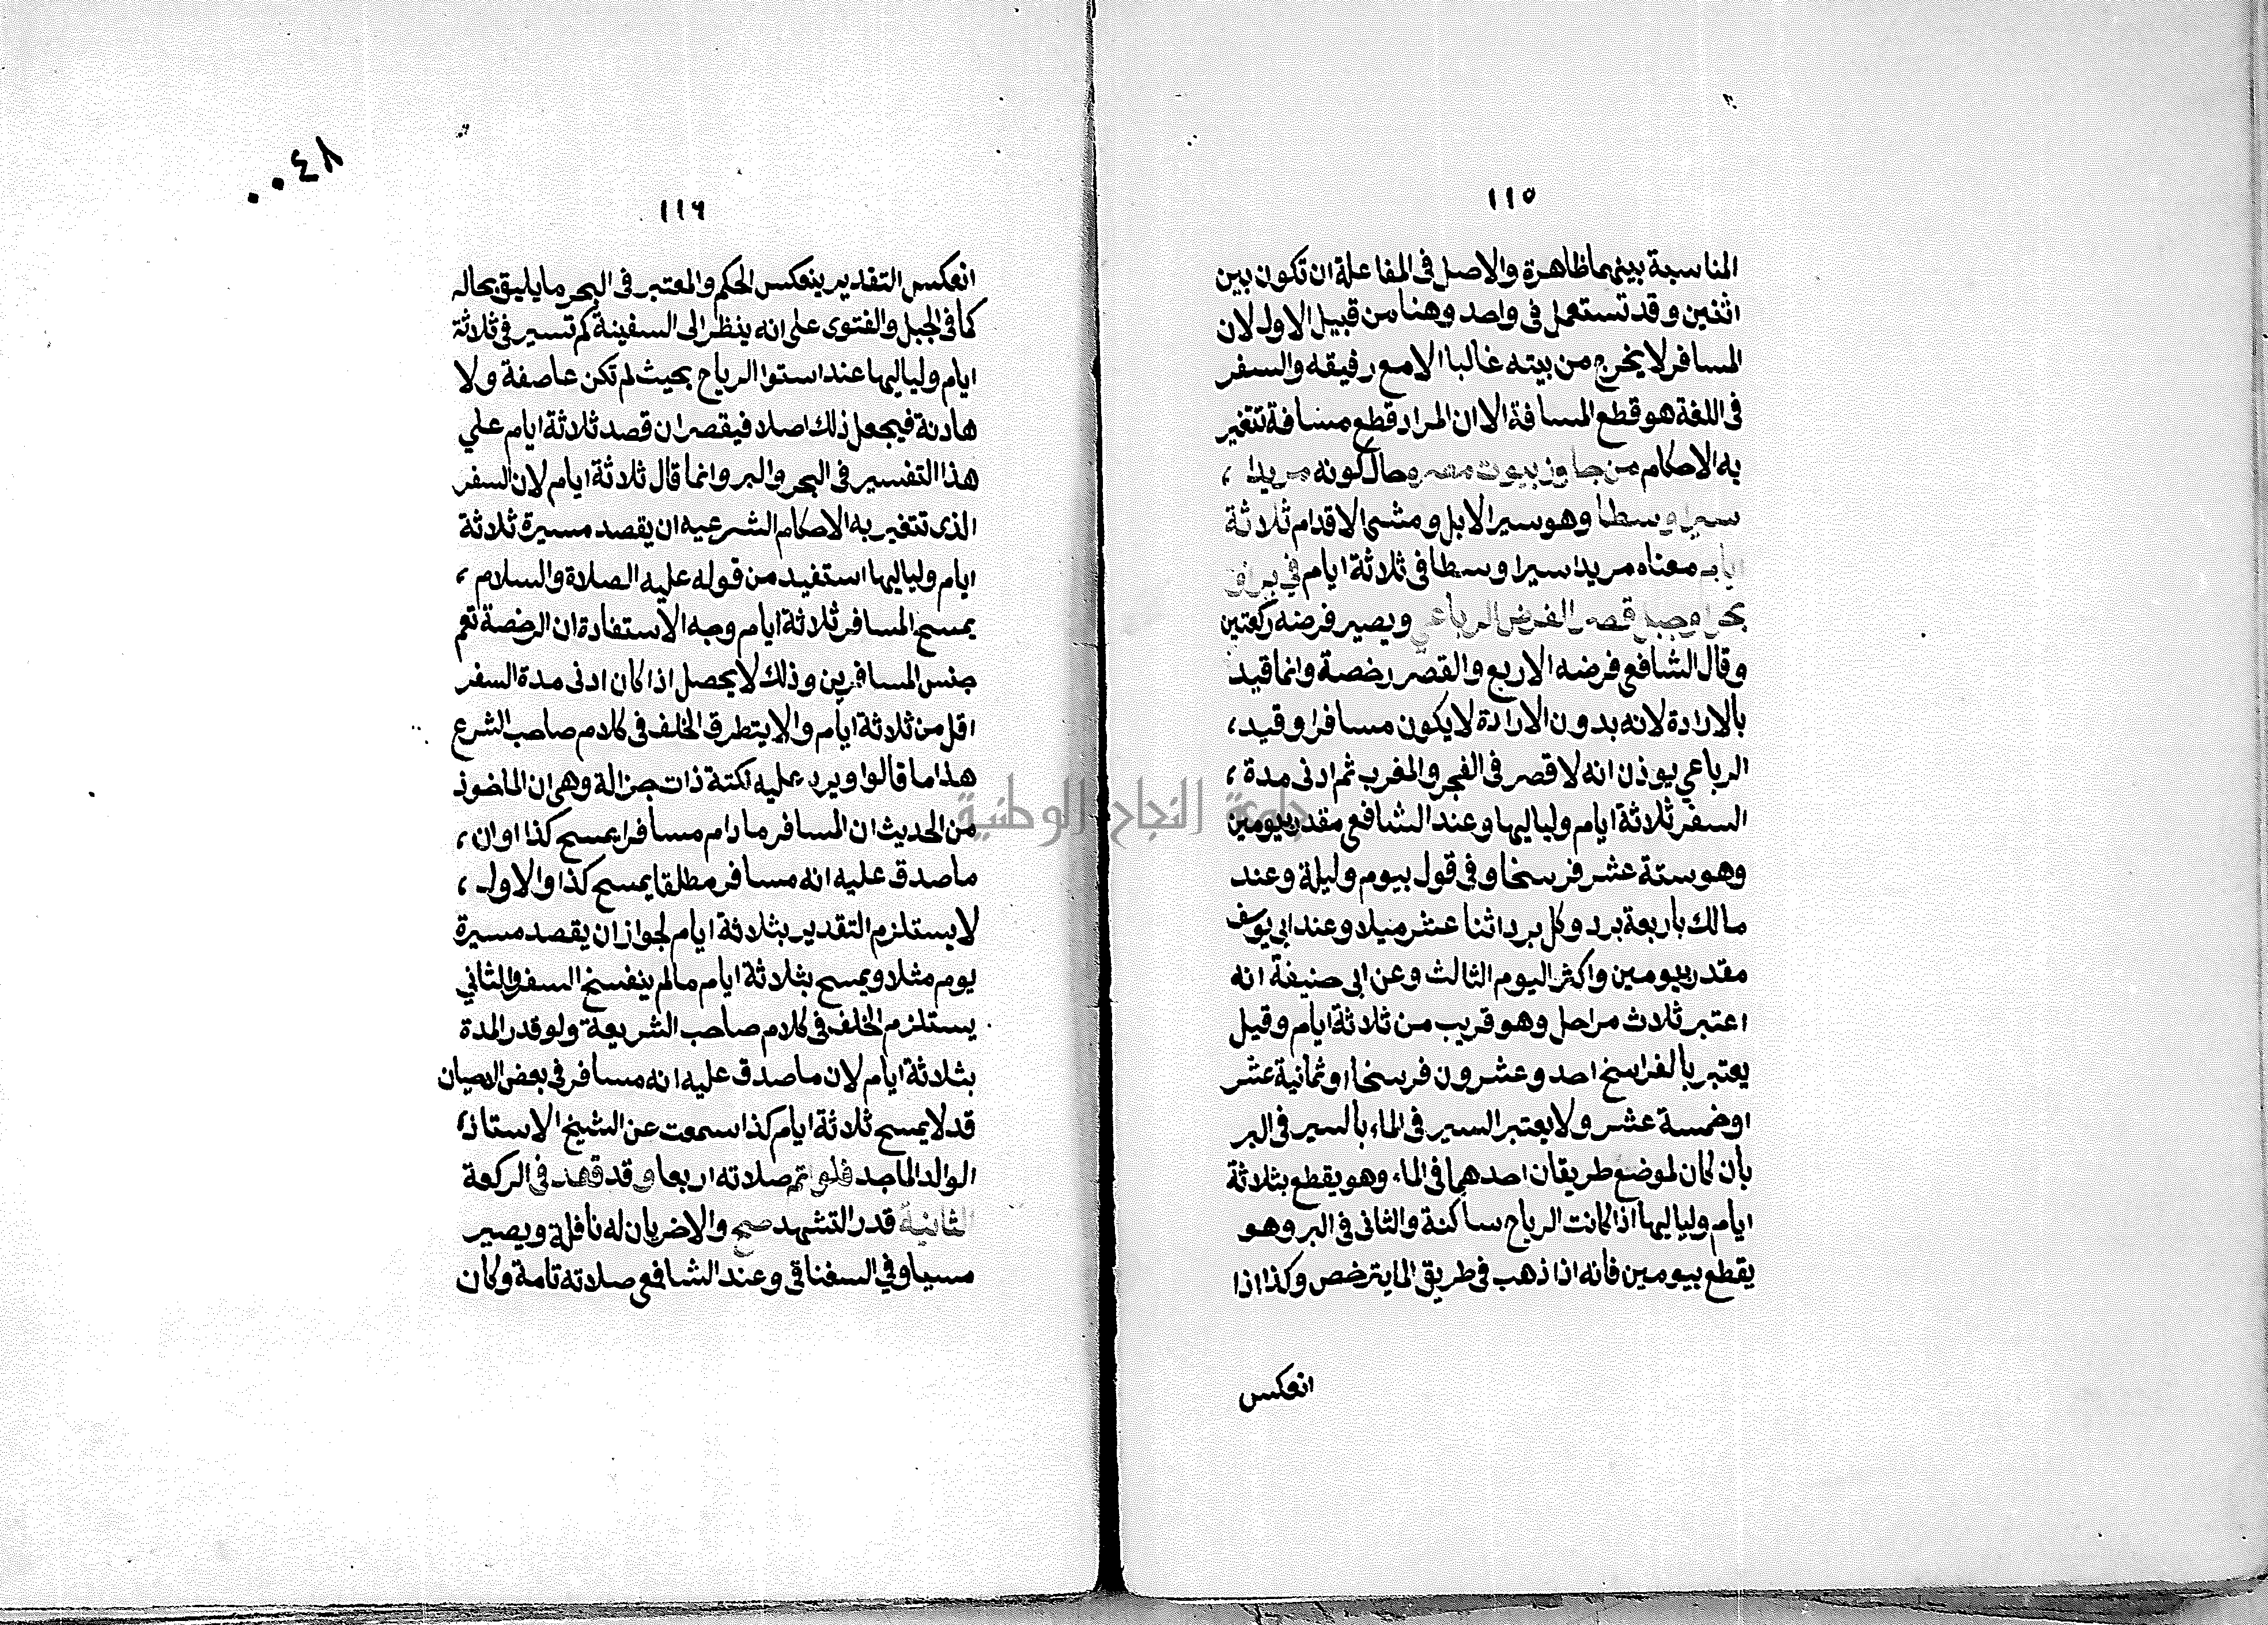 ١١٥
المناسبة بينهما ظاهرة والاصل فى المفاعلة ان تكون بين
اثنين وقد تستعمل فى واحد وهنا من قبيل الاول لان
المسافر لا يخرج من بيته غالبا الا مع رفيقه والسفر
فى اللغة هو قطع المسافة الا ان المراد قطع مسافة تتغير
به الاحكام من جاوز بيوت مصره حال كونه مريدا ،
سيرا وسطا وهو سير الابل ومشى الاقدام ثلاثة
ايام معناه مريدا سيرا وسطا فى ثلاثة ايام في بر او
بحر او جبل قصر الفرض الرباعي ويصير فرضه ركعتين
وقال الشافعى فرضه الاربع والقصر رخصة وانما قيد
بالارادة لانه بدون الارادة لا يكون مسافرا وقيد ،
الرباعي يوذن انه لا قصر فى الفجر والمغرب ثم ادنى مدة ،
السفر ثلاثة ايام ولياليها وعند الشافعى مقدر بيومين
وهو ستة عشر فرسخا وفى قول بيوم وليلة وعند
مالك باربعة برد وكل برد اثنا عشر ميلا وعند ابى يوسف
مقدر بيومين واكثر اليوم الثالث وعن ابى حنيفة انه
اعتبر ثلاث مراحل وهو قريب من ثلاثة ايام وقيل
يعتبر بالفراسخ احد وعشرون فرسخا او ثمانية عشر
او خمسة عشر ولا يعتبر السير فى الماء بالسير فى البر
بأن كان لموضع طريقان احدهما فى الماء وهو يقطع بثلاثة
ايام ولياليها اذا كانت الرياح ساكنة والثانى فى البر وهو
يقطع بيومين فانه اذا ذهب فى طريق الما يترخص وكذا اذا
انعكس
٠٠٤٨
١١٦
انعكس التقدير ينعكس الحكم والمعتبر فى البحر ما يليق بحاله
كما فى الجبل والفتوى على انه ينظر الى السفينة كم تسير فى ثلاثة
ايام ولياليها عند استوا الرياح بحيث لم تكن عاصفة ولا
هادنة فيجعل ذلك اصلا فيقصر ان قصد ثلاثة ايام علي
هذا التفسير فى البحر والبر وانما قال ثلاثة ايام لان السفر
الذى تتغير به الاحكام الشرعيه ان يقصد مسيرة ثلاثة
ايام ولياليها استفيد من قوله عليه الصلاة والسلام ،
يمسح المسافر ثلاثة ايام وجه الاستفادة ان الرخصة تعم
جنس المسافرين وذلك لا يحصل اذا كان ادنى مدة السفر
اقل من ثلاثة ايام والا يتطرق الخلف فى كلام صاحب الشرع
هذا ما قالوا ويرد عليه نكتة ذات جزالة وهى ان الماخوذ
من الحديث ان المسافر ما دام مسافرا يمسح كذا او ان ،
ما صدق عليه انه مسافر مطلقا يمسح كذا والاول ،
لا يستلزم التقدير بثلاثة ايام لجواز ان يقصد مسيرة
يوم مثلا ويمسح بثلاثة ايام ما لم ينفسخ السفر والثاني
يستلزم الخلف فى كلام صاحب الشريعة ولو قدر المدة
بثلاثة ايام لان ما صدق عليه انه مسافر فى بعض الاحيان
قد لا يمسح ثلاثة ايام كذا سمعت عن الشيخ الاستاذ
الوالد الماجد فلو اتم صلاته اربعا وقد قعد فى الركعة
الثانية قدر التشهد صح والاخريان له نافلة ويصير
مسيا وفي السغناقى وعند الشافعى صلاته تامة وكان
جامعة النجاح الوطنية